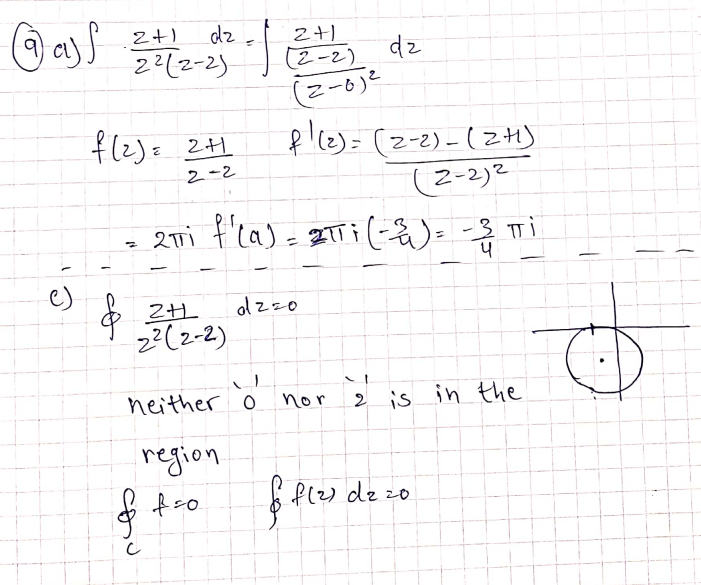 9 a) ∫ z+1 / z²(z-2) dz = ∫ (z+1 / (z-2)) / (z-0)² dz
f(z) = z+1 / z-2   f'(z) = (z-2) - (z+1) / (z-2)²
= 2πi f'(a) = 2πi (-3/4) = -3/4 πi
c) ∮ z+1 / z²(z-2) dz = 0
neither '0' nor '2' is in the
region
∮_C f = 0   ∮ f(z) dz = 0